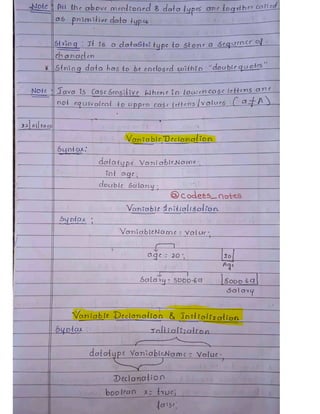 Note : All the above mentioned 8 data types are together called
as primitive data types
String : It is a datatype to store a sequence of
character
* String data has to be enclosed within "double quotes"
Note : Java is Case Sensitive where in lowercase letters are
not equivalent to upper case letters / values (a≠A)
Variable Declaration
Syntax:
datatype VariableName;
int age;
double Salary;
@codees_notes
Variable Initialisation
Syntax :
VariableName = value;
age = 20;
20
Age
Salary = 5000.69
5000.69
Salary
Variable Declaration & Initialisation
Syntax
Initialization
datatype VariableName = Value;
Declaration
boolean x = true;
false;